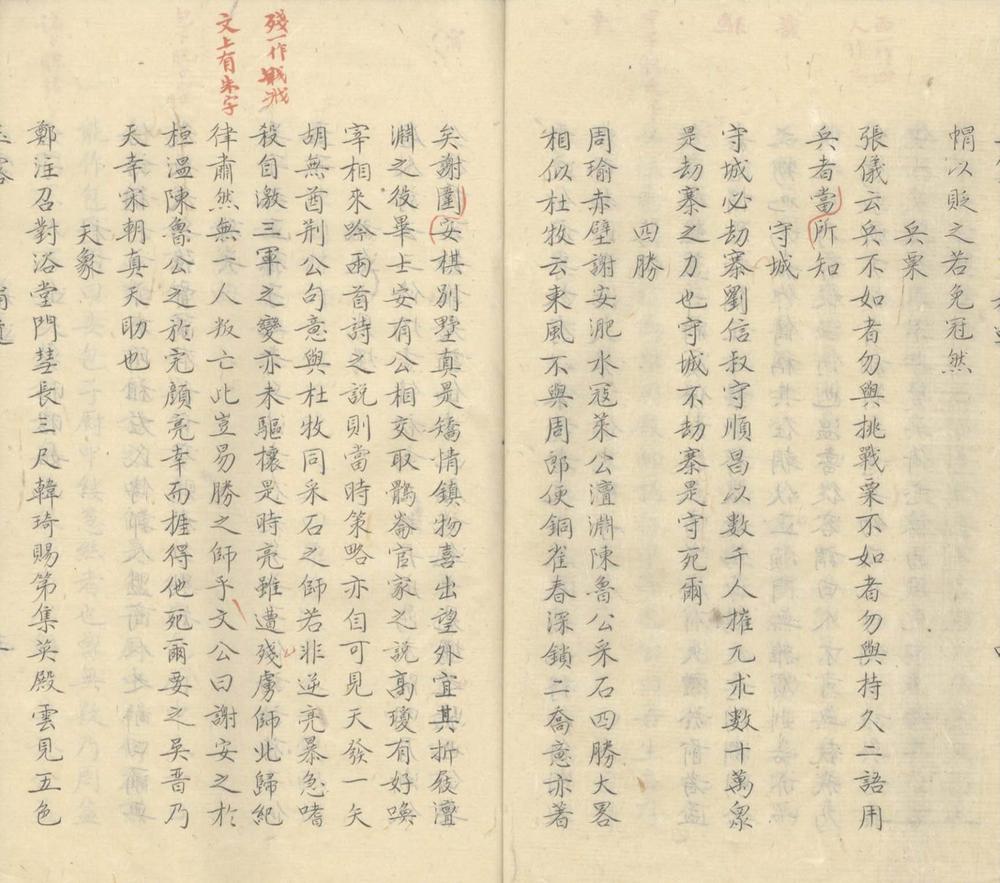 帽以貶之若免冠然
兵粟
張儀云兵不如者勿與挑戰粟不如者勿與持久二語用
兵者當所知
守城
守城必劫寨劉信叔守順昌以數千人摧兀朮數十萬衆
是劫寨之力也守城不劫寨是守死爾
四勝
周瑜赤壁謝安淝水寇萊公澶淵陳魯公采石四勝大畧
相似杜牧云東風不與周郎便銅雀春深鎖二喬意亦著
矣謝圍安棋別墅真是矯情鎮物喜出望外宜其折屐澶
淵之役畢士安有公相交取鶻崙官家之説高瓊有好喚
宰相來吟兩首詩之説則當時策略亦自可見天發一矢
胡無酋荆公句意與杜牧同采石之師若非逆亮暴急嗜
殺自激三軍之變亦未驅攘是時亮雖遭殘虜師北歸紀
律肅然無一人叛亡此豈易勝之師乎文公曰謝安之於
桓温陳魯公之於完顔亮幸而捱得他死爾要之吴晋乃
天幸宋朝真天助也
天象
鄭注召對浴堂門彗長三尺韓琦賜第集英殿雲見五色
殘一作戕
文上有朱字